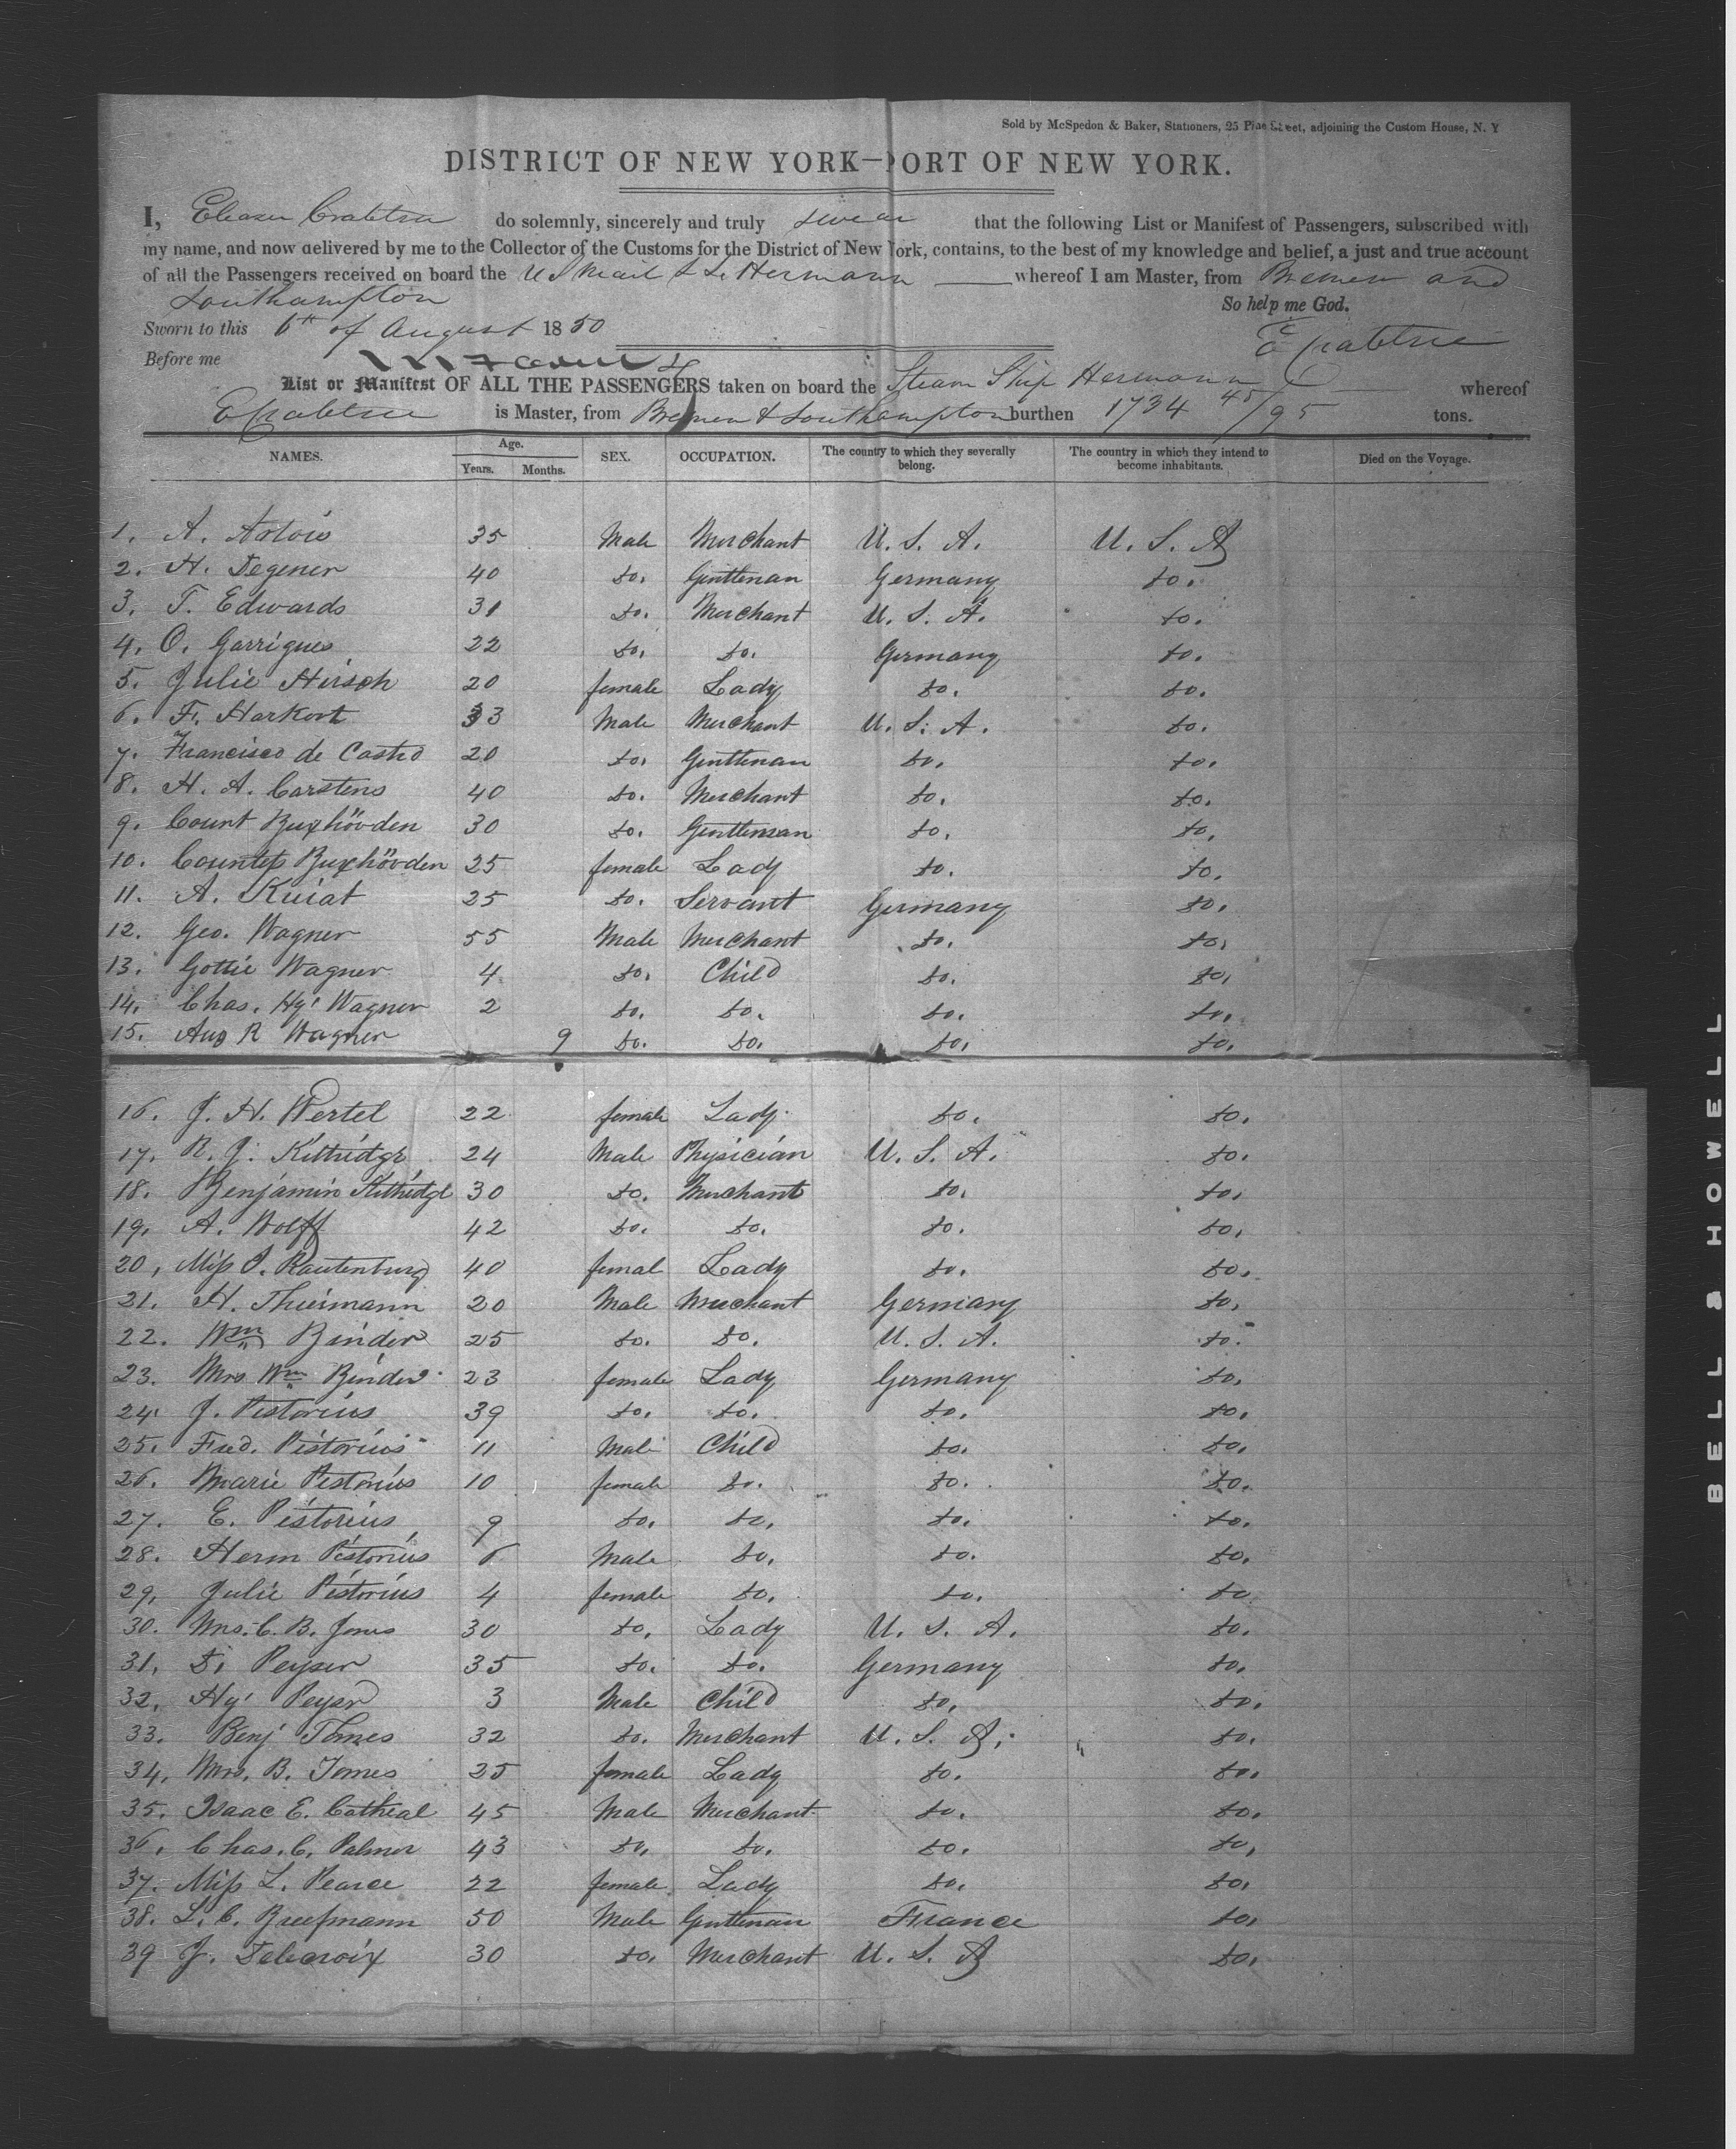 Sold by McSpedon & Baker, Stationers, 25 Pine Street, adjoining the Custom House, N. Y
DISTRICT OF NEW YORK—PORT OF NEW YORK.
I, Eleazer Crabtree do solemnly, sincerely and truly swear that the following List or Manifest of Passengers, subscribed with
my name, and now delivered by me to the Collector of the Customs for the District of New York, contains, to the best of my knowledge and belief, a just and true account
of all the Passengers received on board the U S Mail S S. Hermann whereof I am Master, from Bremen and
Southampton
So help me God.
Sworn to this 6th of August 1850
E Crabtree
Before me
List or Manifest OF ALL THE PASSENGERS taken on board the Steam Ship Hermann whereof
E Crabtree is Master, from Bremen & Southampton burthen 1734 45/95 tons.
NAMES. Age. Years. Months. SEX. OCCUPATION. The country to which they severally belong. The country in which they intend to become inhabitants. Died on the Voyage.
1. A. Artois 35 Male Merchant U. S. A. U. S. A
2. H. Degener 40 do. Gentleman Germany do.
3. T. Edwards 31 do. Merchant U. S. A. do.
4. O. Garrigues 22 do. do. Germany do.
5. Julie Hirsch 20 female Lady do. do.
6. F. Harkort 33 Male Merchant U. S. A. do.
7. Francisco de Castro 20 do. Gentleman do. do.
8. H. A. Carstens 40 do. Merchant do. do.
9. Count Buxhövden 30 do. Gentleman do. do.
10. Countess Buxhövden 25 female Lady do. do.
11. A. Kuiat 25 do. Servant Germany do.
12. Geo. Wagner 55 Male Merchant do. do.
13. Gottie Wagner 4 do. Child do. do.
14. Chas. Hy. Wagner 2 do. do. do. do.
15. Aug R Wagner 9 do. do. do. do.
16. J. H. Wertel 22 female Lady do. do.
17. R. J. Kittridge 24 Male Physician U. S. A. do.
18. Benjamin Kittridge 30 do. Merchant do. do.
19. A. Wolff 42 do. do. do. do.
20. Miss J. Rautenburg 40 femal Lady do. do.
21. H. Thiermann 20 Male Merchant Germany do.
22. Wm Binder 25 do. do. U. S. A. do.
23. Mrs Wm Binder 23 female Lady Germany do.
24. J. Pistorius 39 do. do. do. do.
25. Fred. Pistorius 11 Male Child do. do.
26. Marie Pistorius 10 female do. do. do.
27. E. Pistorius 9 do. do. do. do.
28. Herm Pistorius 6 Male do. do. do.
29. Julie Pistorius 4 female do. do. do
30. Mrs. C. B. Jones 30 do. Lady U. S. A. do.
31. D. Peyser 35 do. do. Germany do.
32. Hy. Peyser 3 Male Child do. do.
33. Benj Tomes 32 do. Merchant U. S. A. do.
34. Mrs. B. Tomes 25 female Lady do. do.
35. Isaac E. Cotheal 45 Male Merchant do. do.
36. Chas. C. Palmer 43 do. do. do. do.
37. Miss L. Pearce 22 female Lady do. do.
38. L. C. 50 Male Gentleman France do.
39 J. Delacroix 30 do. Merchant U. S. A do.
BELL & HOWELL